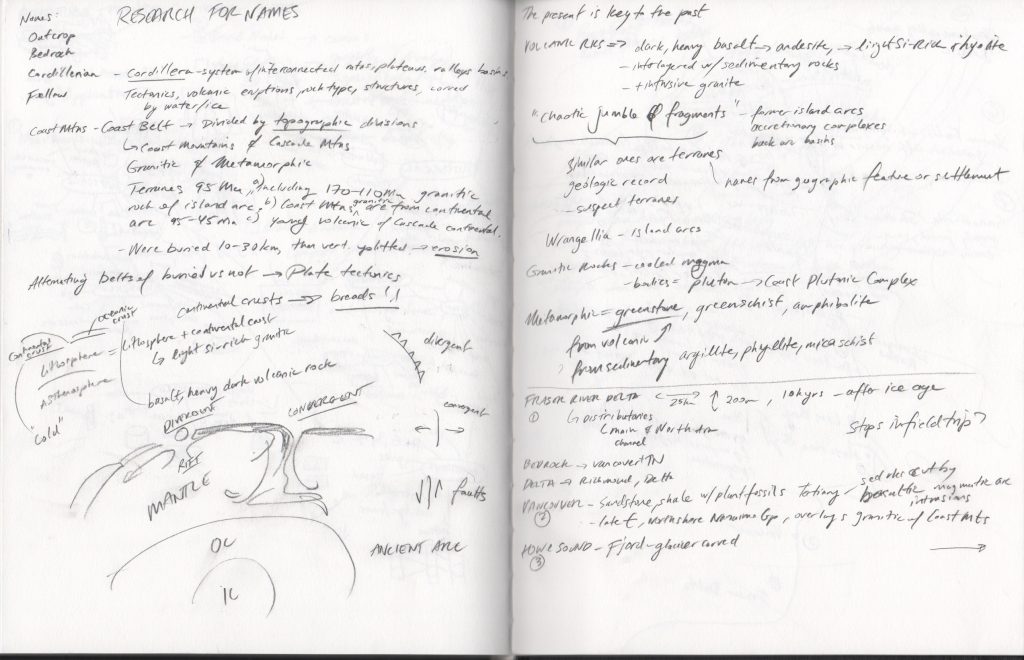 Names:
RESEARCH FOR NAMES
Outcrop
Bedrock
Cordillerian - Cordillera - system w/ interconnected mtns, plateaus, valleys basins
Fellow
Tectonics, volcanic eruptions, rock types, structures, carved
by water/ice
Coast Mtns - Coast Belt → Divided by topographic divisions
↳ Coast Mountains & Cascade Mtns
Granitic & Metamorphic
Terranes 95 Ma, a) including 170-110 Ma granitic
rock of island arc. b) Coast Mtns granitic are from continental
arc 95-45 Ma c) young volcanic of Cascade continental.
- Were buried 10-30km, then vert. uplifted → erosion
Alternating belts of buried vs not → Plate tectonics
continental crusts → breads!!
oceanic crust
Continental crust
Lithosphere = lithosphere + continental crust
↳ light si-rich granitic
Asthenosphere
basalt, heavy dark volcanic rock
"Cold"
divergent
DIVERGENT
CONVERGENT
convergent
RIFT
MANTLE
faults
OC
ANCIENT ARC
IC
The present is key to the past
VOLCANIC RKS => dark, heavy basalt → andesite, → light Si-Rich rhyolite
- interlayered w/ sedimentary rocks
- + intrusive granite
"chaotic jumble of fragments" - former island arcs
accretionary complexes
back arc basins
Similar ones are terranes
geologic record
names from geographic feature or settlement
- suspect terranes
Wrangellia - island arcs
Granitic Rocks - cooled magma
- bodies = pluton → Coast Plutonic Complex
Metamorphic = greenstone, greenschist, amphibolite
from volcanic
from sedimentary argillite, phyllite, mica schist
FRASER RIVER DELTA 25k ↕ 200m, 10kyrs - after ice age
① ↳ Distributaries
(main & North Arm
channel
Stops in field trip?
BEDROCK → Vancouver TN
DELTA → Richmond, Delta
VANCOUVER - Sandstone, shale w/ plant fossils Tertiary - sed rks cut by
basaltic magmatic arc
intrusions
② - late K, Northshore Nanaimo Gp, overlays granitic of Coast Mts
HOWE SOUND - Fjord - glacier carved →
③